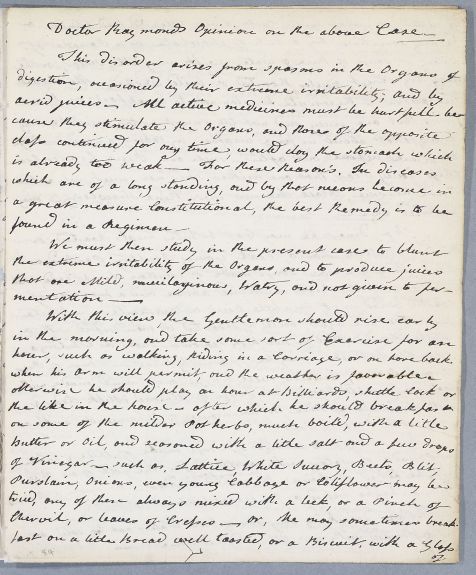 Doctor Raymonds Opinion on the above Case
This disorder arises from spasms in the Organs of
digestion, occasioned by their extreme irritability; and by
acrid juices — All active medicines must be hurtfull be-
cause they stimulate the Organs, and those of the opposite
class continued for any time, would clog the stomach which
is already too weak — For these Reasons. In diseases
which are of a long standing, and by that means become in
a great measure Constitutional, the best Remedy is to be
found in a Regimen —
We must then study in the present case to blunt
the extreme irritability of the Organs, and to produce juices
that are Mild, mucilaginous, Watry, and not given to fer-
mentation —
With this view the Gentleman should rise early
in the morning, and take some sort of Exercise for an
hour, such as walking, Riding in a Carriage, or on horseback
when his arm will permit, and the weather is favorable
otherwise he should play an hour at Billiards, shuttle Cock or
the like in the house — after which he should breakfast
on some of the milder Pot herbs, much boild, with a litle
Butter or Oil, and seasoned with a litle salt and a few drops
of Vinegar — such as, Lattice, White Succory, Beets, Blit,
Purslain, Onions, even young Cabbage or Coliflower may be
tried, any of these always mixed with a leek, or a Pinch of
Chervil, or leaves of Cresses — or, he may sometimes break-
fast on a litle Bread well toasted, or a Biscuit, with a Glass
of